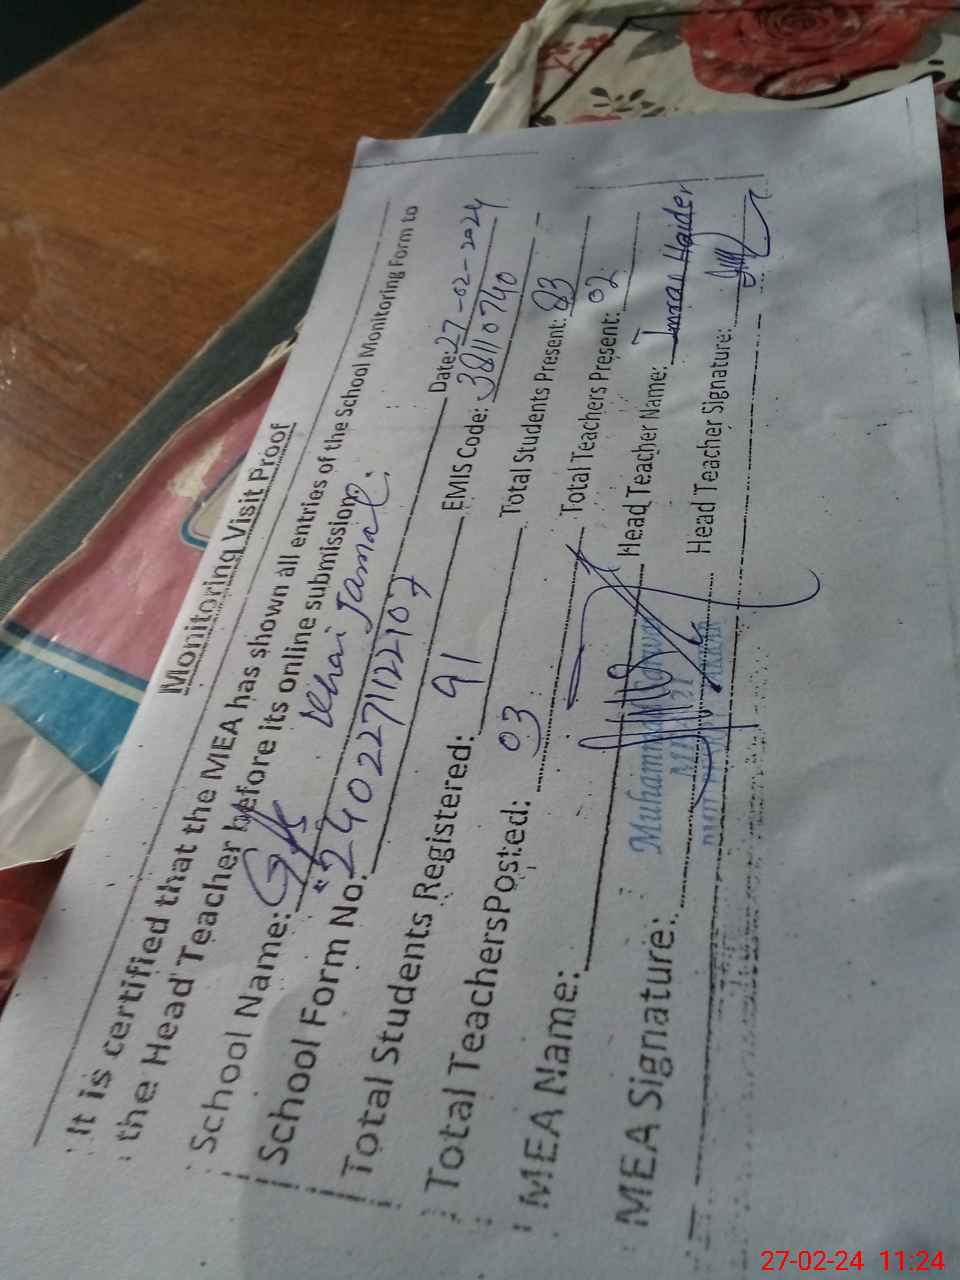 Monitoring Visit Proof
It is certified that the MEA has shown all entries of the School Monitoring Form to
the Head Teacher before its online submission.
School Name: Jamal Date: 27-02-2024
School Form No. 240227112107 EMIS Code: 38110740
Total Students Registered: 91 Total Students Present: 83
Total Teachers Posted: 03 Total Teachers Present: 02
MEA Name: Muhammad Head Teacher Name: Imran Haider
MEA Signature: Head Teacher Signature:
27-02-24 11:24